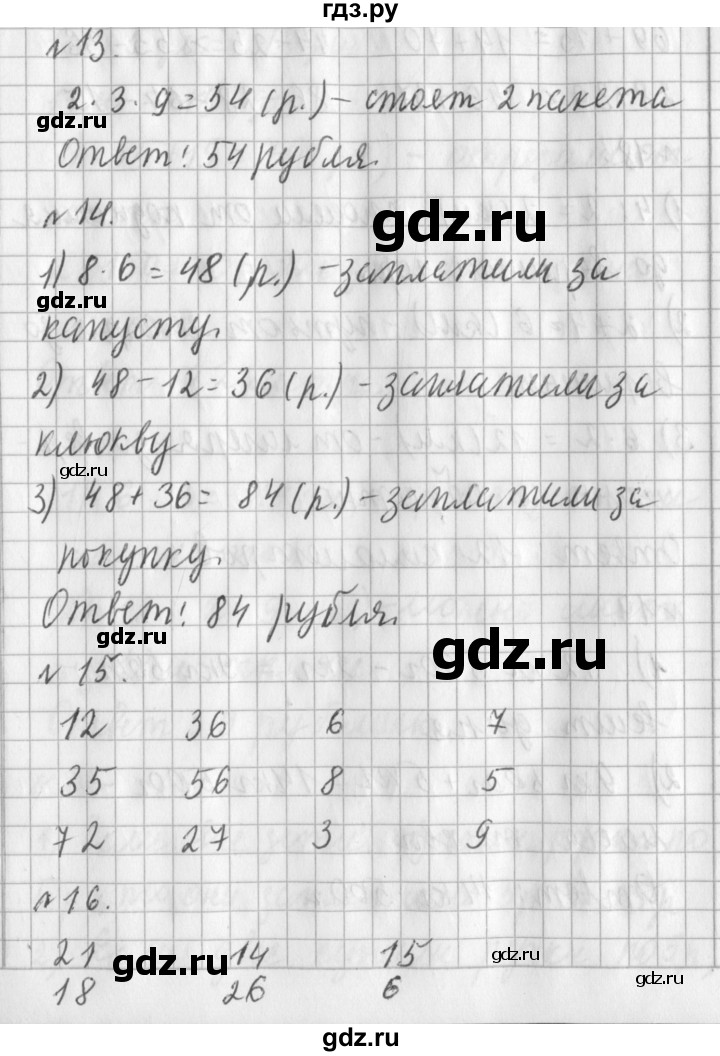 гдз.ру
№13.
2·3·9=54(р.) – стоят 2 пакета
gdz.ru
Ответ! 54 рубля.
№14.
gdz.ru
1) 8·6=48(р.) – заплатили за
капусту.
2) 48-12=36(р.) – заплатили за
клюкву
gdz.ru
3) 48+36= 84(р.) – заплатили за
покупку.
Ответ! 84 рубля.
gdz.ru
gdz.ru
№15.
12 36 6 7
35 56 8 5
72 27 3 9
№16.
21 14 15
gdz.ru gdz.ru gdz.ru
18 26 6
gdz.ru